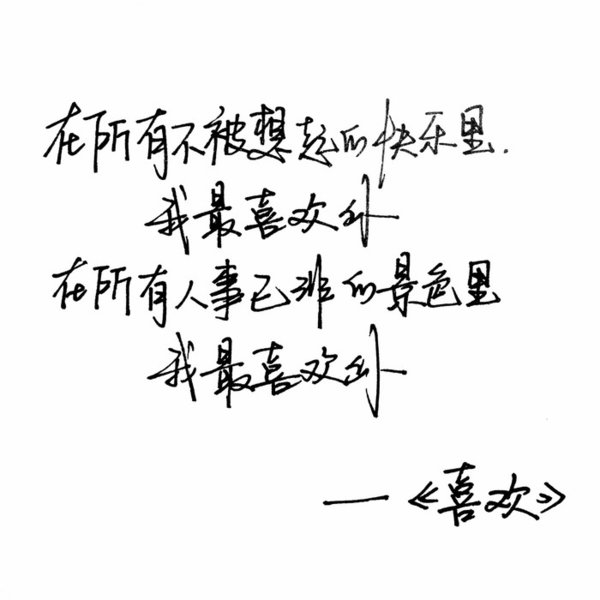 在所有不被想起的快乐里.
我最喜欢你
在所有人事已非的景色里
我最喜欢你
——《喜欢》